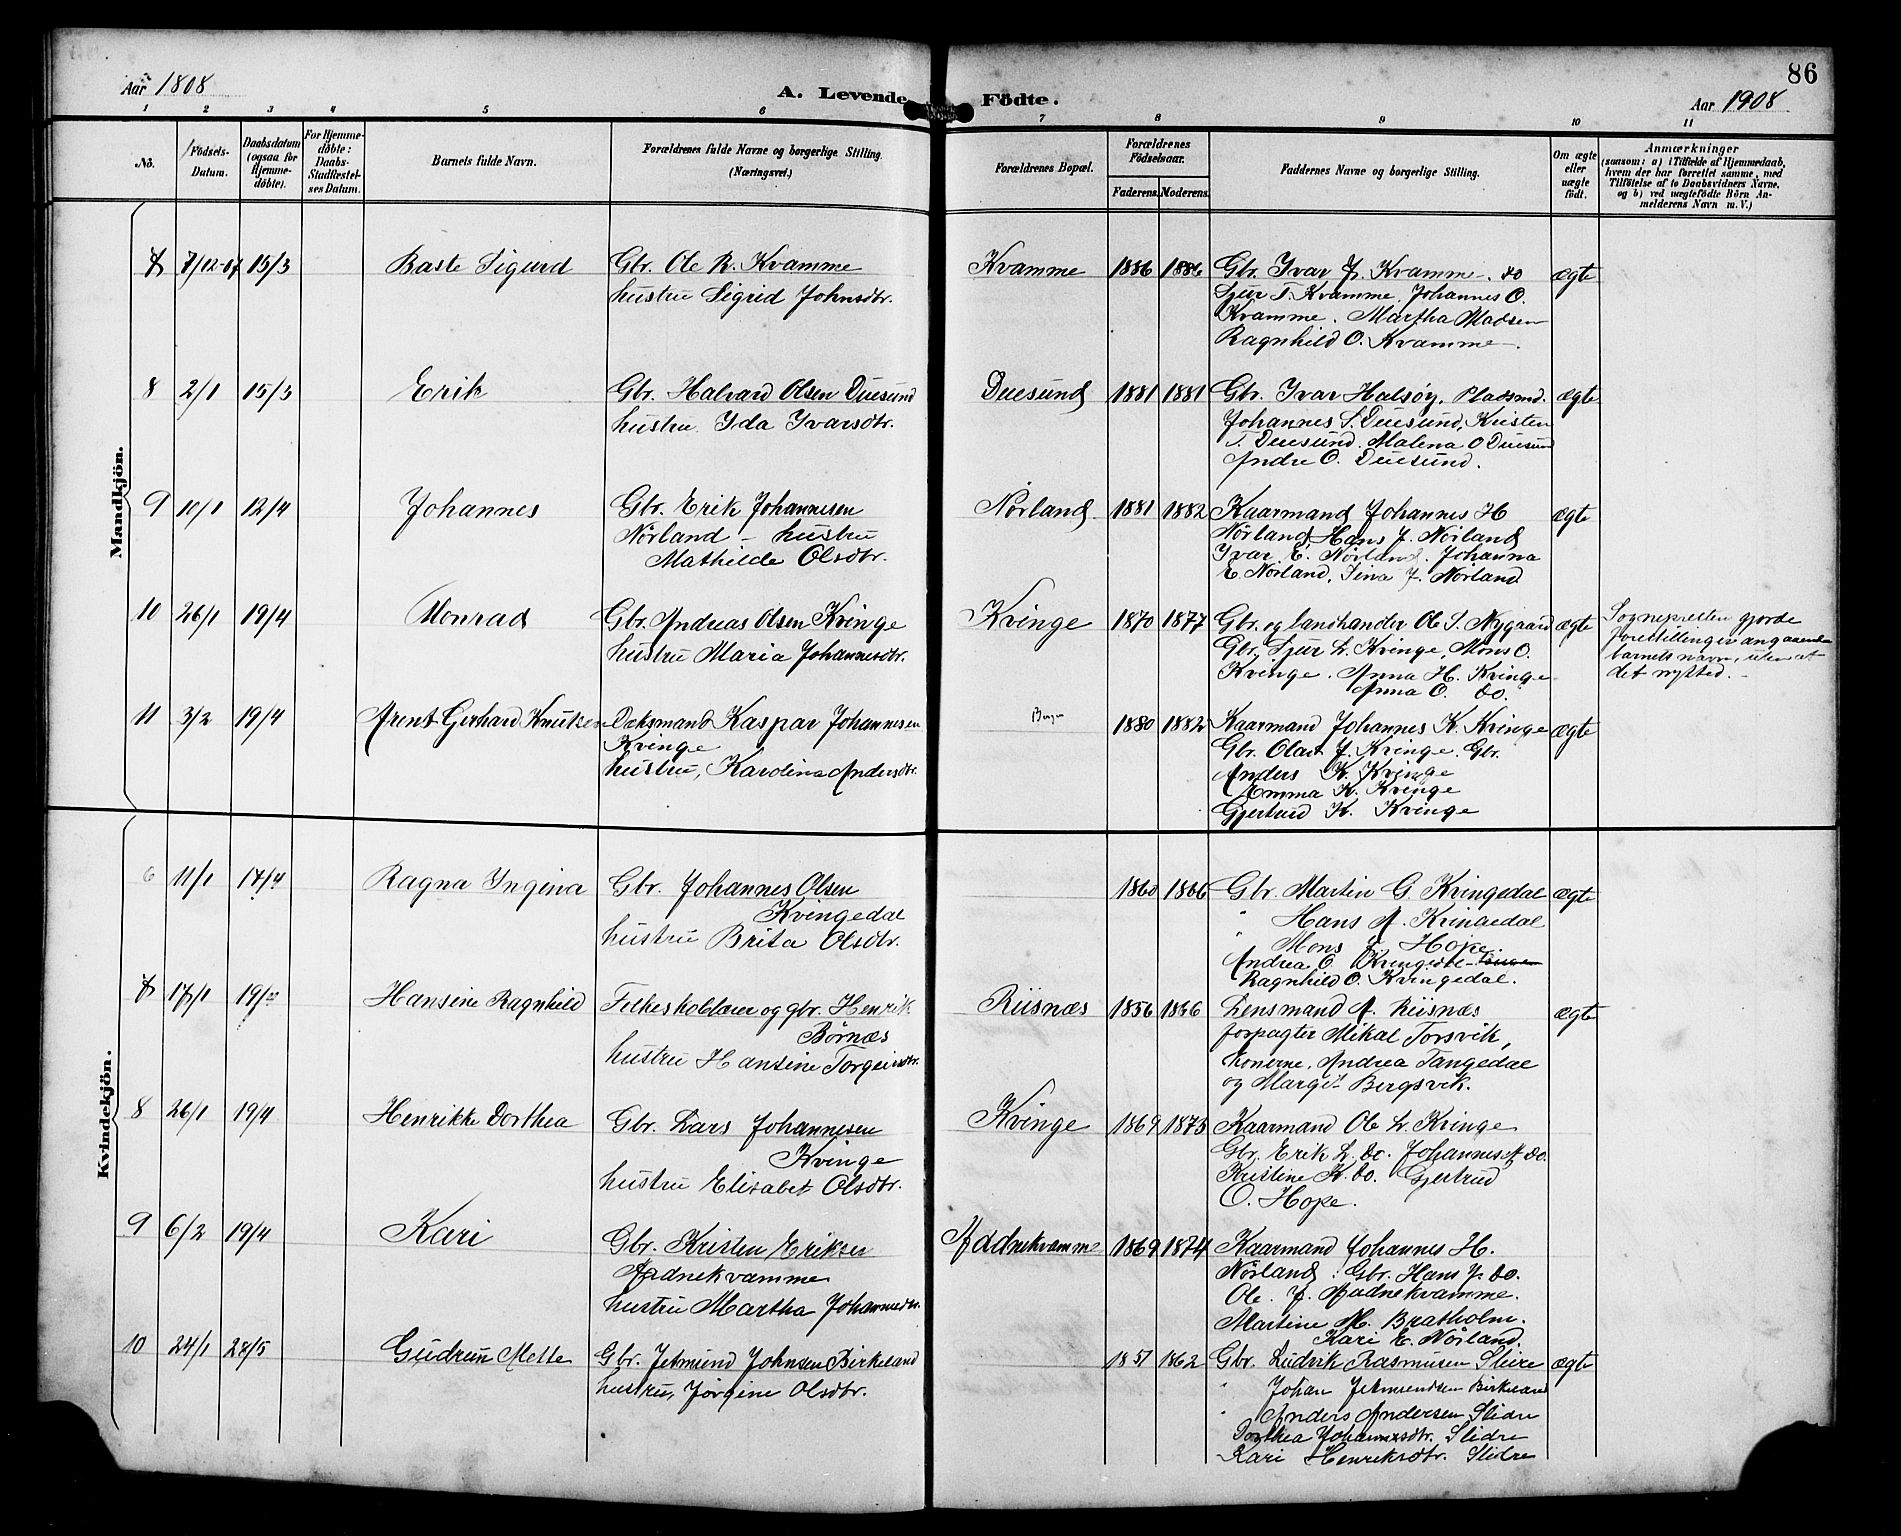 86
Aar 1808
A. Levende Födte.
Aar 1908
1 2 3 4 5 6 7 8 9 10 11
Nô.
Födsels-Datum.
Daabsdatum (ogsaa for Hjemme-döbte).
For Hjemme-döbte: Daabs-Stadfæstel-ses Datum.
Barnets fulde Navn.
Forældrenes fulde Navne og borgerlige Stilling. (Næringsvei.)
Forældrenes Bopæl.
Forældrenes Födselsaar.
Faderens. Moderens.
Faddernes Navne og borgerlige Stilling.
Om ægte eller uægte födt.
Anmærkninger
(saasom: a) i Tilfælde af Hjemmedaab,
hvem der har forrettet samme, med
Tilföielse af to Daabsvidners Navne,
og b) ved uægtefödte Börn An-
melderens Navn m. V.)
Mandkjön.
7 7/12-07 15/3 Baste Sigurd Gbr. Ole R. Kvamme Kvamme 1886 1886 Gbr. Ivar J. Kvamme. do ægte
hustru Sigrid Johnsdtr. Sjur T. Kvamme. Johannes O.
Kvamme. Martha Madsen
Ragnhild O. Kvamme.
8 2/1 15/3 Erik Gbr. Halvard Olsen Duesund Duesund 1881 1881 Gbr. Ivar Halsøy. Pladsmd. ægte
hustru Ida Ivarsdtr. Johannes S. Duesund, Kristen
T. Duesund. Malena O Duesund
Andre O. Duesund.
9 10/1 12/4 Johannes Gbr. Erik Johannesen Nørland 1881 1882 Kaarmand Johannes H ægte
Nørland - hustru Nørland, Hans J. Nørland
Mathilde Olsdtr. Ivar E. Nørland. Johanna
E. Nørland, Sina J. Nørland
10 26/1 19/4 Monrad Gbr. Andreas Olsen Kvinge Kvinge 1870 1877 Gbr. og landhandler Ole S. Nygaard ægte Sognepresten gjorde
hustru Maria Johannesdtr. Gbr. Sjur L. Kvinge, Mons O. forestillinger angaaende
Kvinge. Anna H. Kvinge barnets navn, uten at
Anna O. do. det nyttet.
11 3/2 19/4 Arent Gerhard Knutsen Doksmand Kaspar Johannesen Bergen 1880 1882 Kaarmand Johannes K. Kvinge ægte
Kvinge Gbr. Olai J. Kvinge. Gbr.
hustru, Karolina Andersdtr. Anders K. Kvinge
Emma K. Kvinge
Gjertrud K. Kvinge
Kvindekjön.
6 11/1 17/4 Ragna Ingina Gbr. Johannes Olsen 1860 1866 Gbr. Martin G. Kvingedal ægte
Kvingedal " Hans A. Kvingedal
hustru Brita Olsdtr. " Mons Hope
Andrea O Kvingedal
Ragnhild O. Kvingedal.
7 17/1 19/ Hansine Ragnhild Folkeskolelærer og gbr. Henrik Riisnæs 1856 1866 Lensmand A. Riisnæs ægte
Børnæs forpagter Mikal Torsvik,
hustru Hansine Torgeirsdtr. konerne, Andrea Tangedal
og Margit Bergsvik.
8 26/1 19/4 Henrikke Dorthea Gbr. Lars Johannesen Kvinge 1869 1873 Kaarmand Ole L. Kvinge
Kvinge Gbr. Erik L. do. Johannes A do.
hustru Elisabet Olsdtr. Kristine K. do. Gjertrud
O. Hope.
9 6/2 19/4 Kari Gbr. Kristen Eriksen Aadnekvamme 1869 1874 Kaarmand Johannes H.
Aadnekvamme Nørland. Gbr. Hans J. do.
hustru Martha Johannesdtr. Ole J. Aadnekvamme.
Martine M. Bratholm.
Kari E. Nørland.
10 24/1 28/5 Gudrun Mette Gbr. Jetmund Johnsen Birkeland 1851 1862 Gbr. Ludvik Rasmusen Slire ægte
hustru, Jørgine Olsdtr. " Johan Jetmundsen Birkeland
" Anders Andersen Slidre
Dorthea Johannesdtr. Slidre
Kari Henriksdtr. Slidre